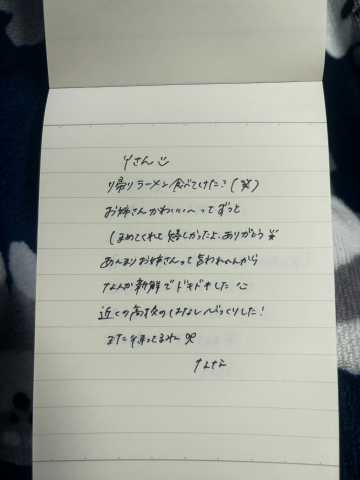 Yさん
帰りラーメン食べていけた?(笑)
お姉さんかわいい〜ってずっと
ほめてくれて嬉しかったよ、ありがとう
あんまりお姉さんって言われへんから
なんか新鮮でドキドキした
近くの高校のはなしびっくりした!
また待ってるねー
ななな